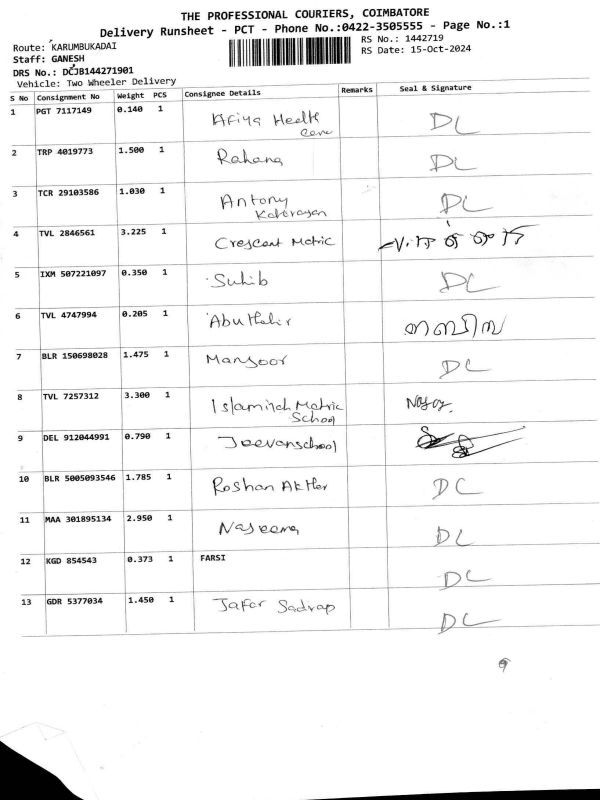 THE PROFESSIONAL COURIERS, COIMBATORE
Delivery Runsheet - PCT - Phone No.:0422-3505555 - Page No.:1
Route: KARUMBUKADAI
RS No.: 1442719
Staff: GANESH
RS Date: 15-Oct-2024
DRS No.: DCJB144271901
Vehicle: Two Wheeler Delivery
S No Consignment No Weight PCS Consignee Details Remarks Seal & Signature
1 PGT 7117149 0.140 1 Afiya Health DL
Care
2 TRP 4019773 1.500 1 Rahana DL
3 TCR 29103586 1.030 1 Antony DL
4 TVL 2846561 3.225 1 Crescent Matric
5 IXM 507221097 0.350 1 Suhib DL
6 TVL 4747994 0.205 1 Abuthahir
7 BLR 150698028 1.475 1 Mansoor DL
8 TVL 7257312 3.300 1 Islamiah Matric
School
9 DEL 912044991 0.790 1 Jeevanschool
10 BLR 5005093546 1.785 1 Roshan Akther DC
11 MAA 301895134 2.950 1 Naseema DL
12 KGD 854543 0.373 1 FARSI DL
13 GDR 5377034 1.450 1 Jafar Sadiq DL